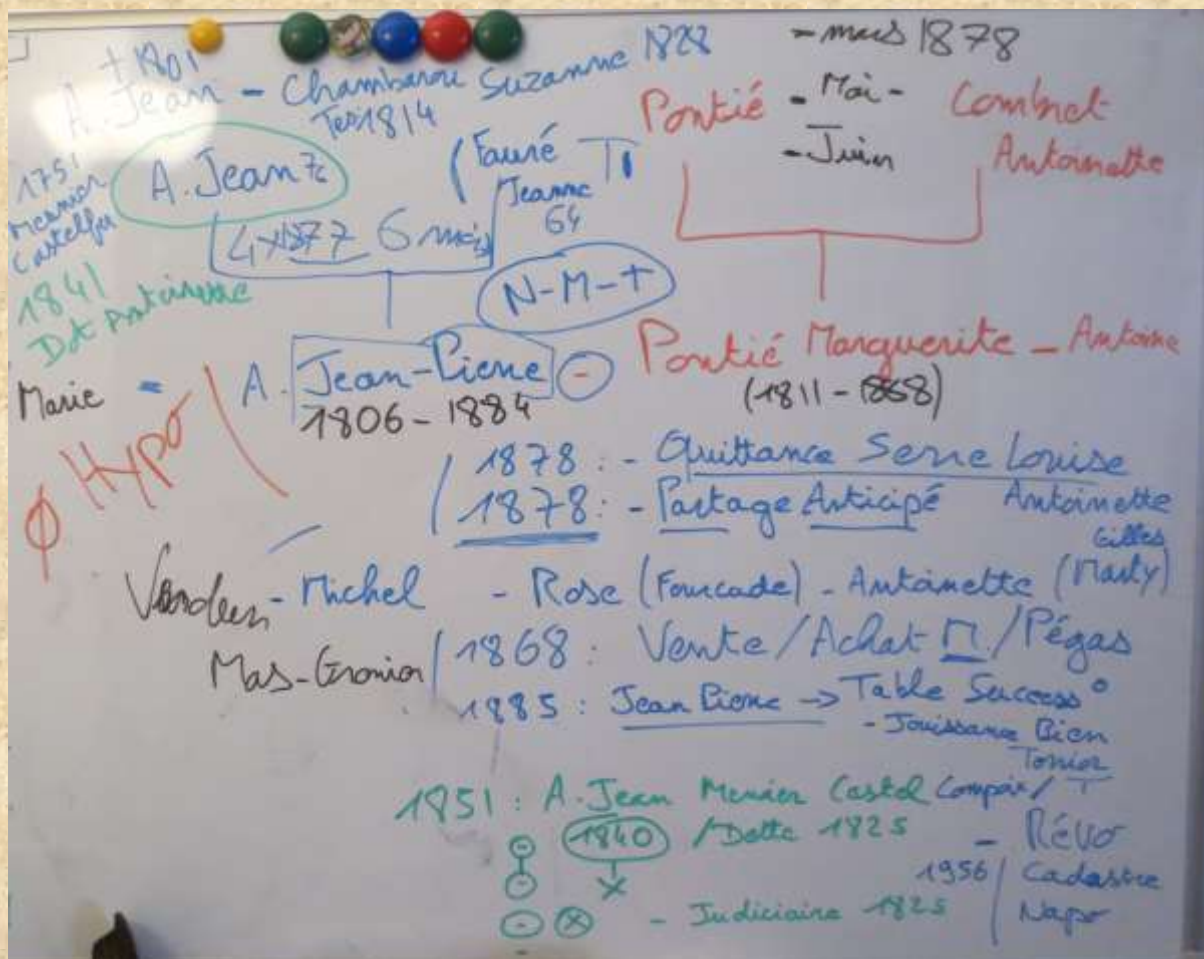 + 1801
A. Jean - Chambarou Suzanne 1828
Tes 1814
- mars 1878
Pontié - Mai - Combret
- Juin Antoinette
1751
Castelfer
A. Jean 76
(Fauré
Jeanne
64
6 mois
N-M-T
1841
Dot Antoinette
Marie = A. Jean-Pierre - Pontié Marguerite - Antoine
1806 - 1884 (1811 - 1868)
Ø Hypo
1878 : - Quittance Serre Louise
1878 : - Partage Anticipé Antoinette
Gilles
- Michel - Rose (Fourcade) - Antoinette (Marty)
Mas-Grenier
1868 : Vente / Achat Π / Pégas
1885 : Jean Pierre -> Table Success°
- Jouissance Bien
1851 : A. Jean Castel Compoix / T
1840 / Dette 1825 - Révo
1956 / Cadastre
- Judiciaire 1825 Napo